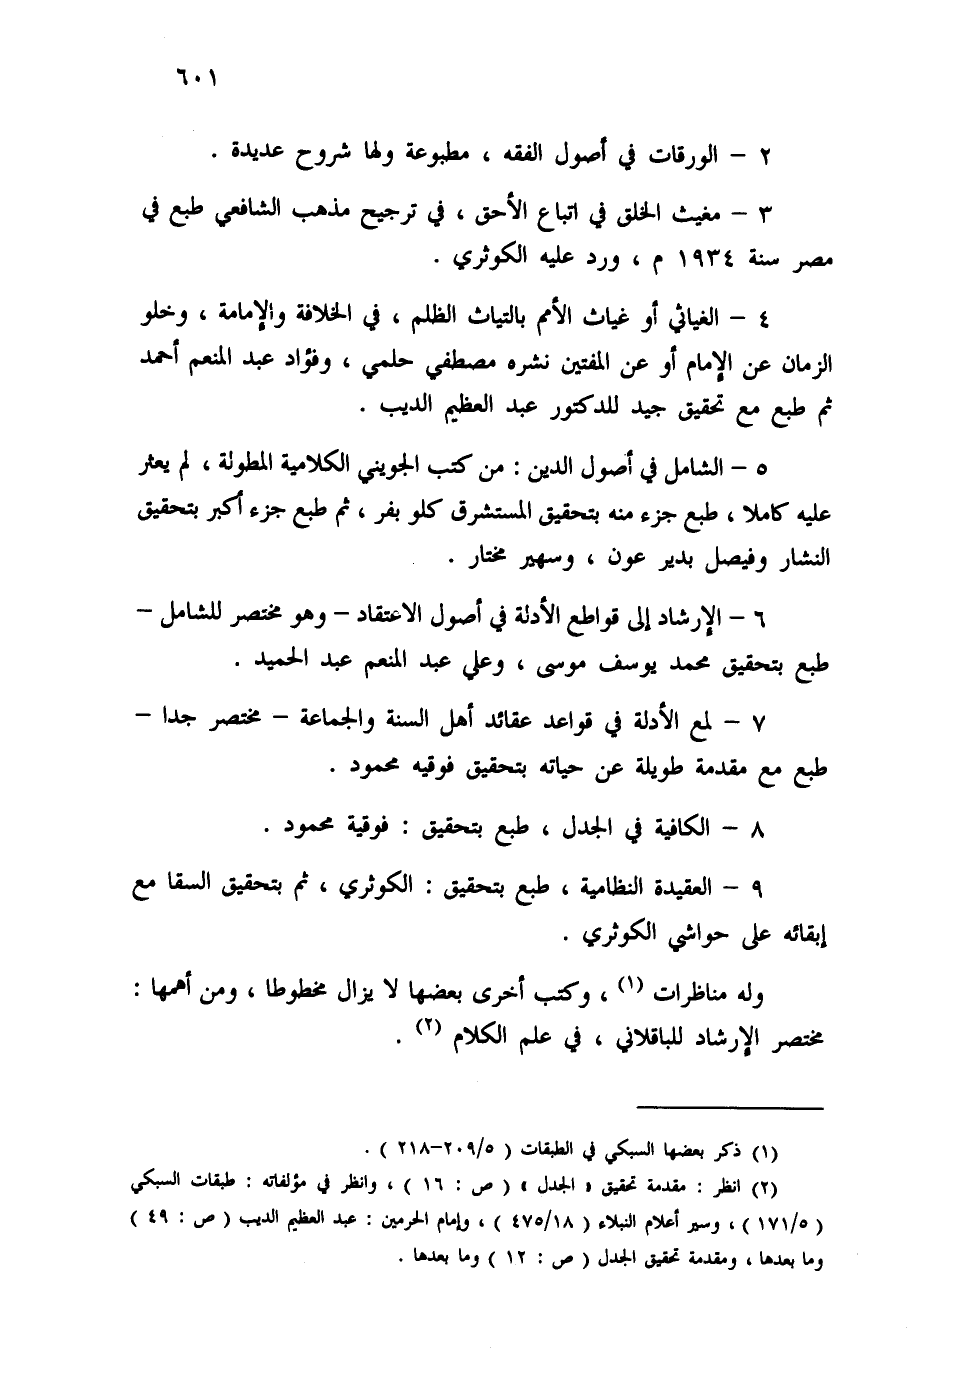 ٦٠١
٢ – الورقات في أصول الفقه ، مطبوعة ولها شروح عديدة .
٣ – مغيث الخلق في اتباع الأحق ، في ترجيح مذهب الشافعي طبع في
مصر سنة ١٩٣٤ م ، ورد عليه الكوثري .
٤ – الغياثي أو غياث الأمم بالتياث الظلم ، في الخلافة والإمامة ، وخلو
الزمان عن الإمام أو عن المفتين نشره مصطفي حلمي ، وفؤاد عبد المنعم أحمد
ثم طبع مع تحقيق جيد للدكتور عبد العظيم الديب .
٥ – الشامل في أصول الدين : من كتب الجويني الكلامية المطولة ، لم يعثر
عليه كاملا ، طبع جزء منه بتحقيق المستشرق كلو بفر ، ثم طبع جزء أكبر بتحقيق
النشار وفيصل بدير عون ، وسهير مختار .
٦ – الإرشاد إلى قواطع الأدلة في أصول الاعتقاد – وهو مختصر للشامل –
طبع بتحقيق محمد يوسف موسى ، وعلي عبد المنعم عبد الحميد .
٧ – لمع الأدلة في قواعد عقائد أهل السنة والجماعة – مختصر جدا –
طبع مع مقدمة طويلة عن حياته بتحقيق فوقيه محمود .
٨ – الكافية في الجدل ، طبع بتحقيق : فوقية محمود .
٩ – العقيدة النظامية ، طبع بتحقيق : الكوثري ، ثم بتحقيق السقا مع
إبقائه على حواشي الكوثري .
وله مناظرات (١) ، وكتب أخرى بعضها لا يزال مخطوطا ، ومن أهمها :
مختصر الإرشاد للباقلاني ، في علم الكلام (٢) .
(١) ذكر بعضها السبكي في الطبقات ( ٢٠٩/٥–٢١٨ ) .
(٢) انظر : مقدمة تحقيق « الجدل » ( ص : ١٦ ) ، وانظر في مؤلفاته : طبقات السبكي
( ١٧١/٥ ) ، وسير أعلام النبلاء ( ٤٧٥/١٨ ) ، وإمام الحرمين : عبد العظيم الديب ( ص : ٤٩ )
وما بعدها ، ومقدمة تحقيق الجدل ( ص : ١٢ ) وما بعدها .